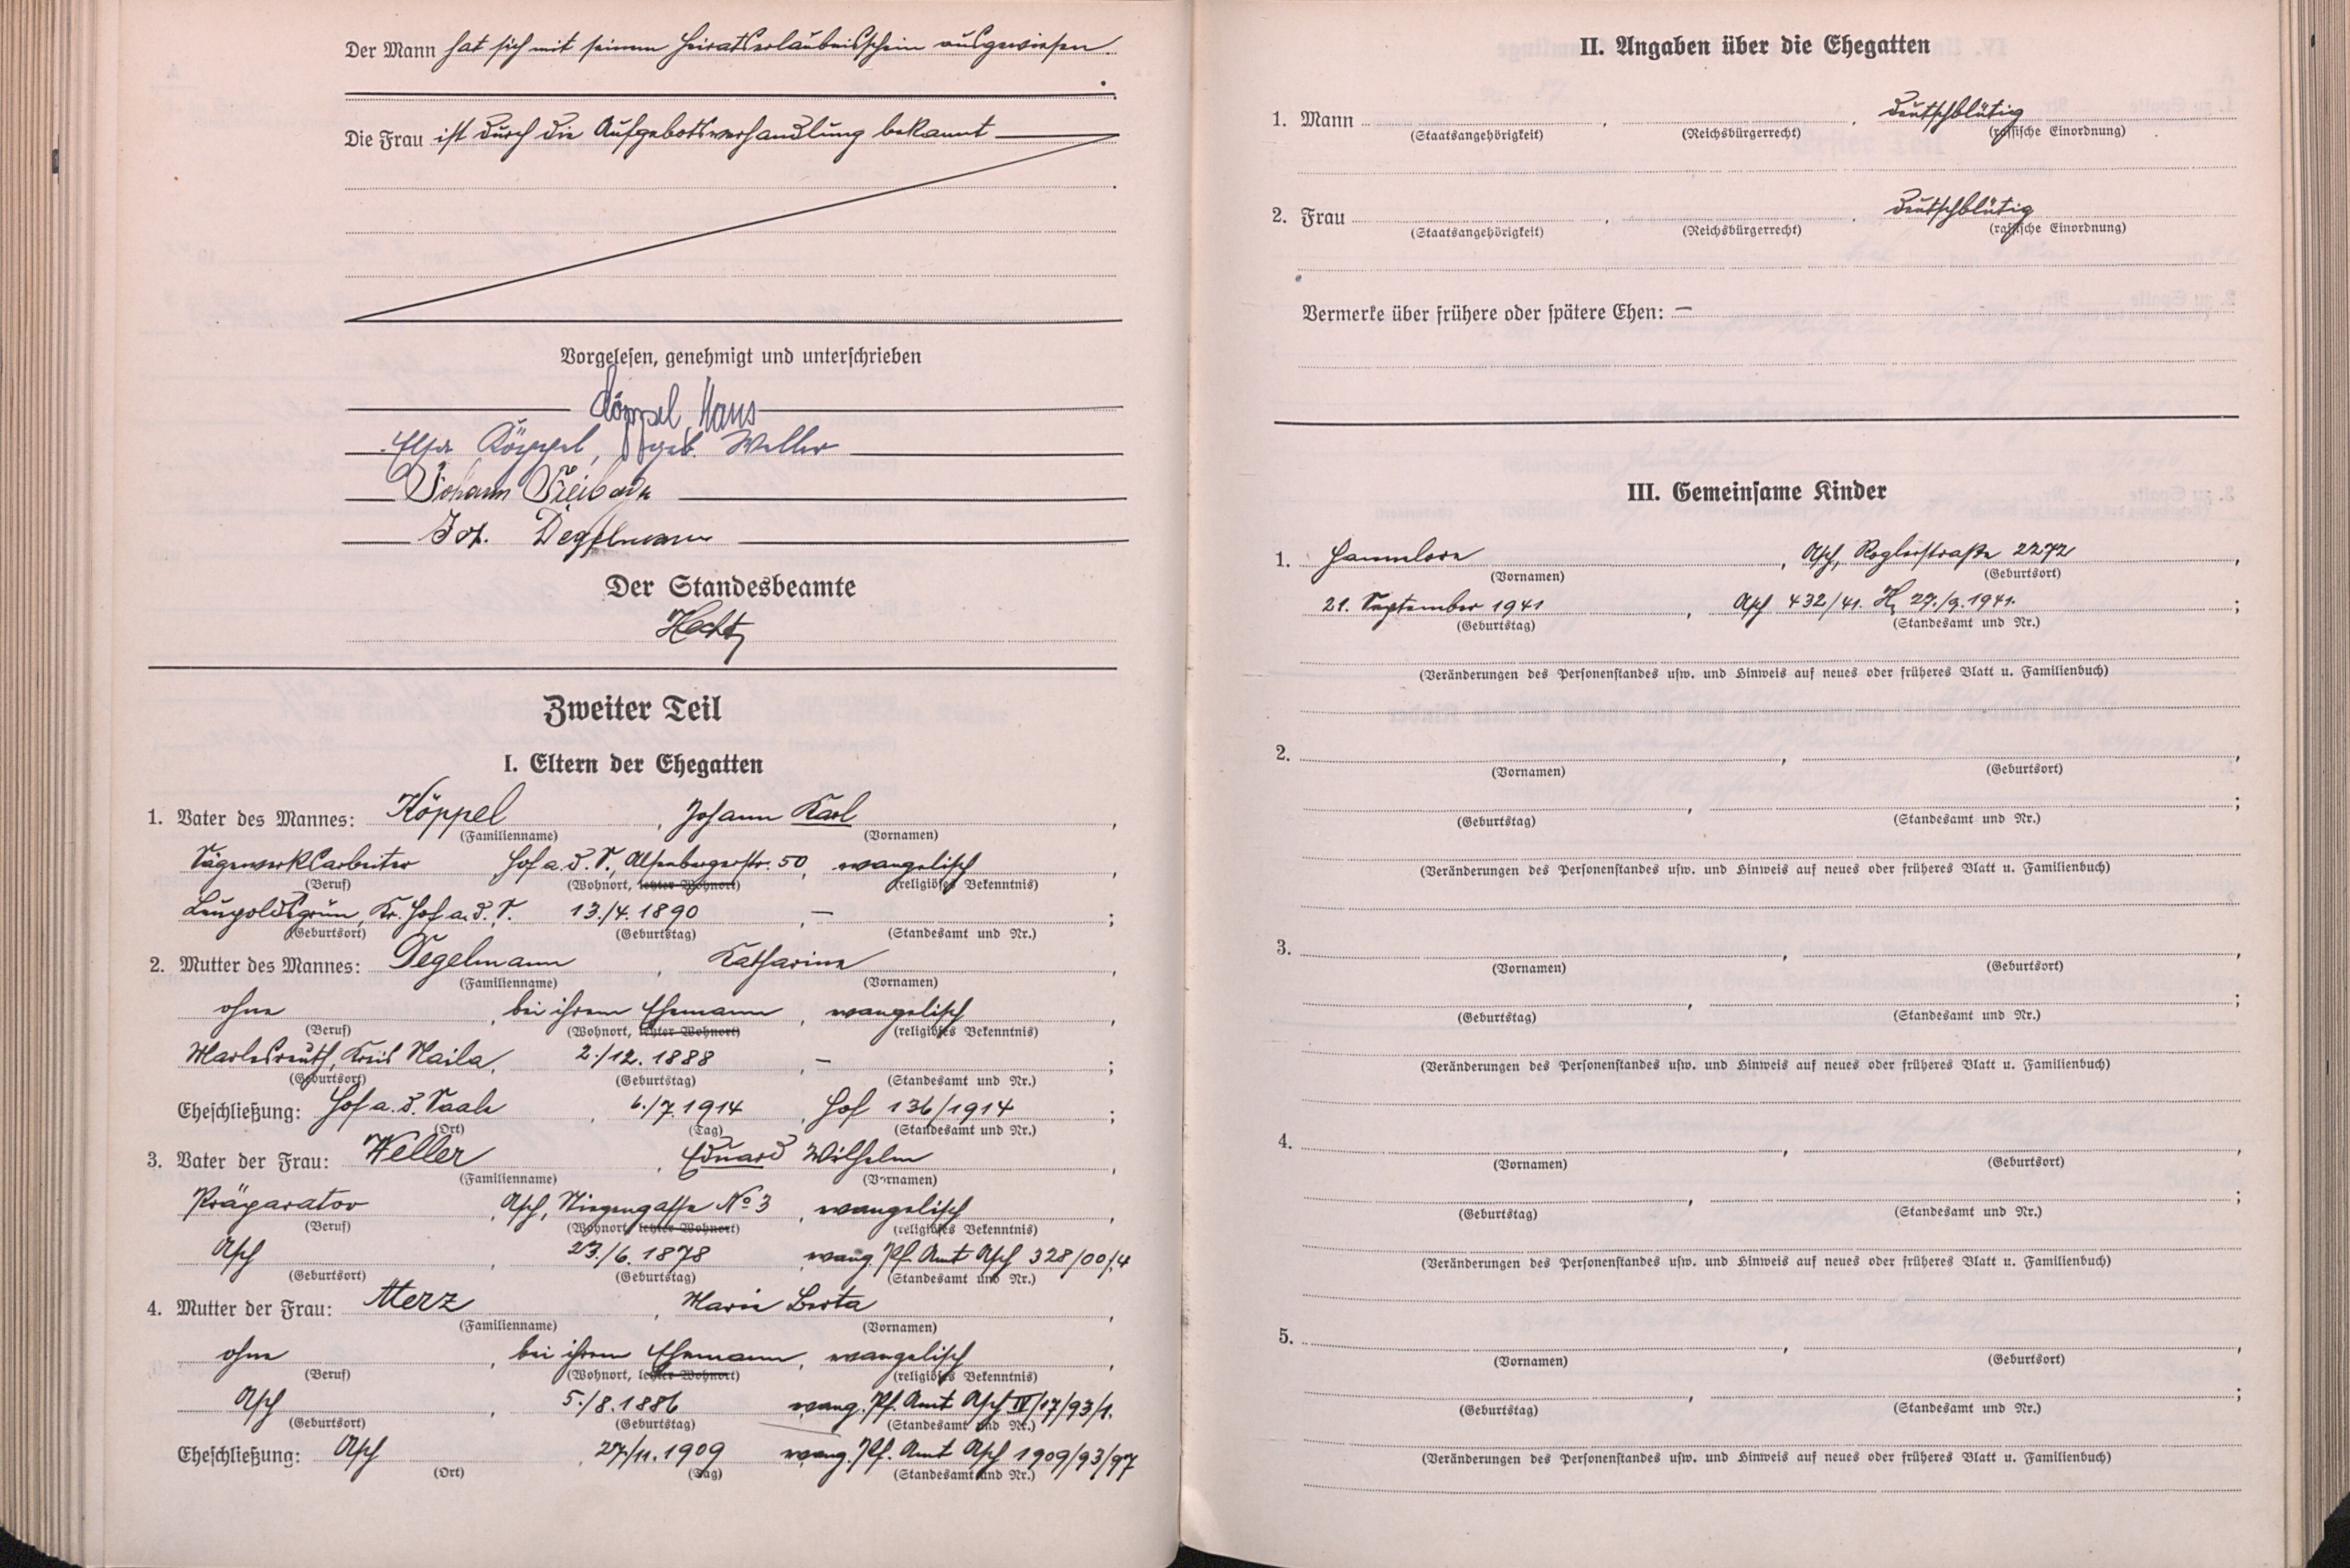 Der Mann hat sich mit seinem Heiratserlaubnisschein ausgewiesen.
Die Frau ist durch die Aufgebotsverhandlung bekannt
Vorgelesen, genehmigt und unterschrieben
Köppel Hans
Elsa Köppel, geb. Weller
Johann
Joh. Degelmann
Der Standesbeamte
Zweiter Teil
I. Eltern der Ehegatten
1. Vater des Mannes: Köppel, Johann Karl,
(Familienname) (Vornamen)
Sägewerksarbeiter Hof a. d. S., Alsenbergerstr. 50, evangelisch,
(Beruf) (Wohnort, letzter Wohnort) (religiöses Bekenntnis)
Leupoldsgrün, Kr. Hof a. d. S. 13./4. 1890, – ;
(Geburtsort) (Geburtstag) (Standesamt und Nr.)
2. Mutter des Mannes: Degelmann, Katharina,
(Familienname) (Vornamen)
ohne, bei ihrem Ehemann, evangelisch,
(Beruf) (Wohnort, letzter Wohnort) (religiöses Bekenntnis)
Marlesreuth, Kreis Naila, 2./12. 1888, – ;
(Geburtsort) (Geburtstag) (Standesamt und Nr.)
Eheschließung: Hof a. d. Saale, 6./7. 1914, Hof 136/1914 ;
(Ort) (Tag) (Standesamt und Nr.)
3. Vater der Frau: Weller, Eduard Wilhelm,
(Familienname) (Vornamen)
Präparator, Asch, Niegengasse No 3, evangelisch,
(Beruf) (Wohnort, letzter Wohnort) (religiöses Bekenntnis)
Asch, 23./6. 1878 evang. Pf. Amt Asch 328/00/4
(Geburtsort) (Geburtstag) (Standesamt und Nr.)
4. Mutter der Frau: Merz, Marie Berta,
(Familienname) (Vornamen)
ohne, bei ihrem Ehemann, evangelisch,
(Beruf) (Wohnort, letzter Wohnort) (religiöses Bekenntnis)
Asch, 5./8. 1886 evang. Pf. Amt Asch IV/17/93/1.
(Geburtsort) (Geburtstag) (Standesamt und Nr.)
Eheschließung: Asch, 27./11. 1909 evang. Pf. Amt Asch 1909/93/97
(Ort) (Tag) (Standesamt und Nr.)
II. Angaben über die Ehegatten
1. Mann , , deutschblütig
(Staatsangehörigkeit) (Reichsbürgerrecht) (rassische Einordnung)
2. Frau , , deutschblütig
(Staatsangehörigkeit) (Reichsbürgerrecht) (rassische Einordnung)
Vermerke über frühere oder spätere Ehen: –
III. Gemeinsame Kinder
1. Hannelore, Asch, Roglerstraße 2272,
(Vornamen) (Geburtsort)
21. September 1941, Asch 432/41. H. 27./9. 1941. ;
(Geburtstag) (Standesamt und Nr.)
(Veränderungen des Personenstandes usw. und Hinweis auf neues oder früheres Blatt u. Familienbuch)
2. , ,
(Vornamen) (Geburtsort)
, ;
(Geburtstag) (Standesamt und Nr.)
(Veränderungen des Personenstandes usw. und Hinweis auf neues oder früheres Blatt u. Familienbuch)
3. , ,
(Vornamen) (Geburtsort)
, ;
(Geburtstag) (Standesamt und Nr.)
(Veränderungen des Personenstandes usw. und Hinweis auf neues oder früheres Blatt u. Familienbuch)
4. , ,
(Vornamen) (Geburtsort)
, ;
(Geburtstag) (Standesamt und Nr.)
(Veränderungen des Personenstandes usw. und Hinweis auf neues oder früheres Blatt u. Familienbuch)
5. , ,
(Vornamen) (Geburtsort)
, ;
(Geburtstag) (Standesamt und Nr.)
(Veränderungen des Personenstandes usw. und Hinweis auf neues oder früheres Blatt u. Familienbuch)